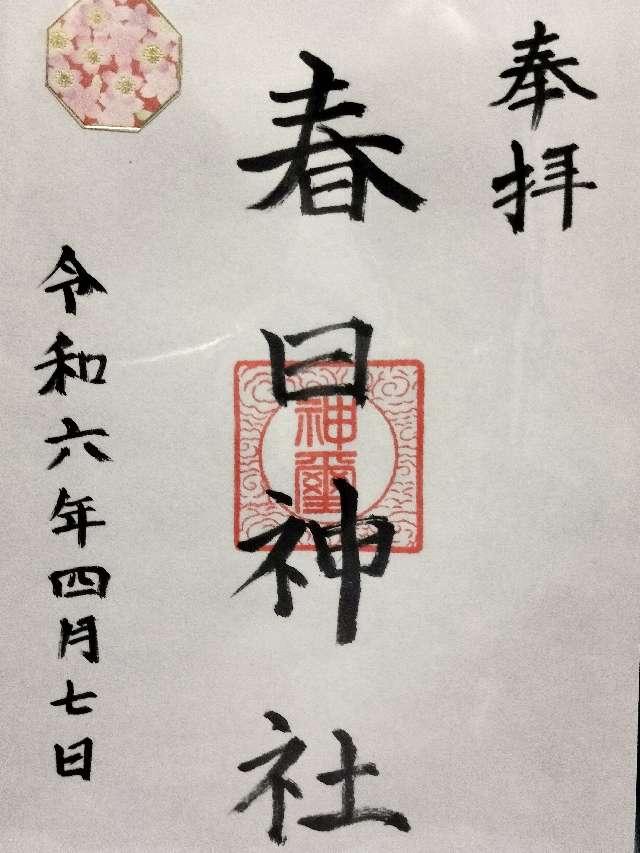 奉拝
春日神社
神璽
令和六年四月七日